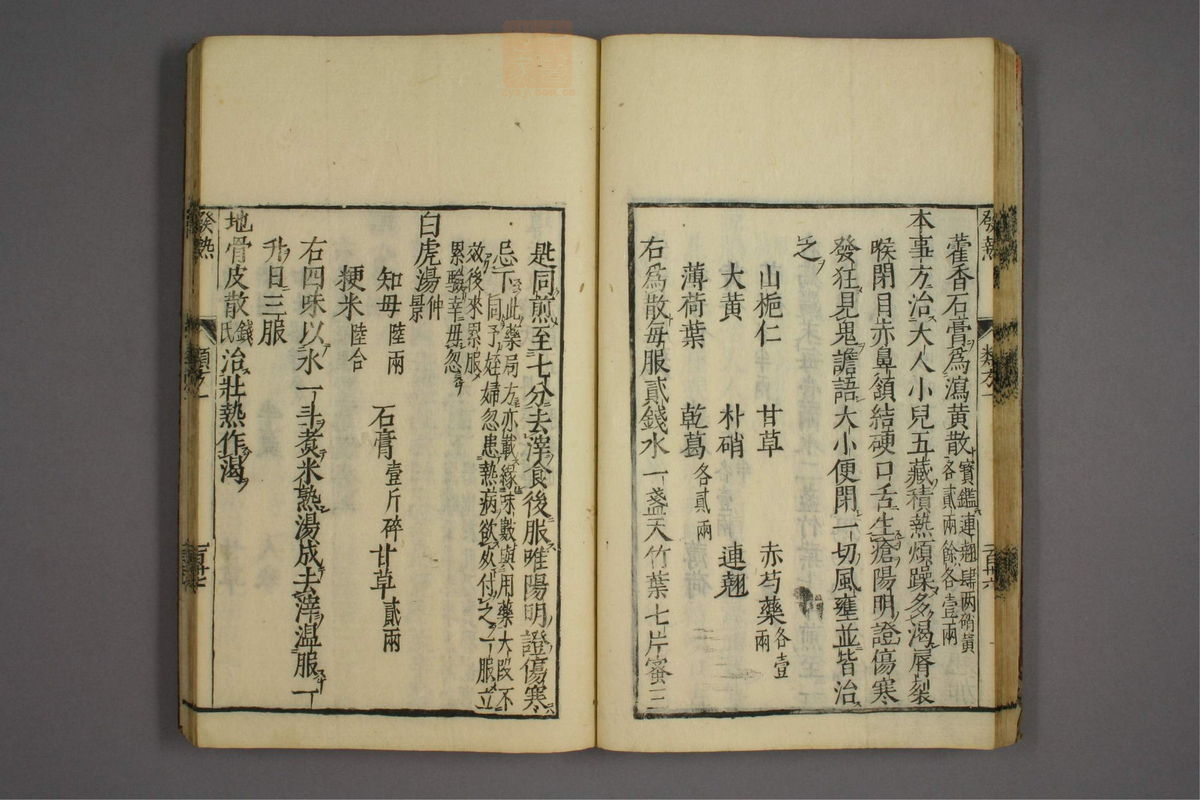 發熱 類方一 百四十六
藿香石膏爲瀉黃散寶鑑連翹肆兩硝黃各貳兩餘各壹兩
本事方治大人小兒五藏積熱煩躁多渴脣裂
喉閉目赤鼻頷結硬口舌生瘡陽明證傷寒
發狂見鬼譫語大小便閉一切風壅並皆治
之
山梔仁 甘草 赤芍藥各壹兩
大黃 朴硝 連翹
薄荷葉 乾葛各貳兩
右爲散每服貳錢水一盞天竹葉七片蜜三
匙同煎至七分去滓食後服唯陽明證傷寒
忌下此藥局方亦載緣味數與用藥大段不同予姪婦忽患熱病欲死付之一服立效後來累服累驗幸毋忽
白虎湯仲景
知母陸兩 石膏壹斤碎 甘草貳兩
粳米陸合
右四味以水一斗煮米熟湯成去滓溫服一
升日三服
地骨皮散錢氏治壯熱作渴
發熱 類方一